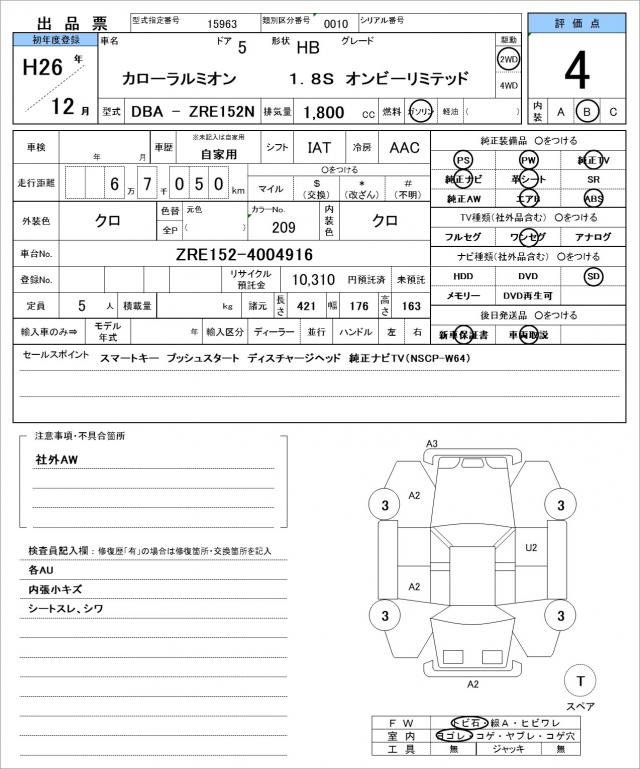 出品票 型式指定番号 15963 類別区分番号 0010 シリアル番号
評価点
初年度登録 車名 ドア 5 形状 HB グレード 駆動
H26 年 カローラルミオン 1.8S オンビーリミテッド 2WD 4
4WD
12 月 型式 DBA － ZRE152N 排気量 1,800 cc 燃料 ガソリン 軽油 ( ) 内装 A B C
車検 年 月 車歴 ※未記入は自家用 自家用 シフト IAT 冷房 AAC
純正装備品 ○をつける
PS PW 純正TV
走行距離 6 万 7 千 0 5 0 km ○をつける
マイル $ (交換) * (改ざん) # (不明)
純正ナビ 革シート SR
純正AW エアB ABS
外装色 クロ 色替 全P 元色 ( ) カラーNo. 209 内装色 クロ
TV種類(社外品含む) ○をつける
フルセグ ワンセグ アナログ
車台No. ZRE152-4004916
ナビ種類(社外品含む) ○をつける
登録No. リサイクル預託金 10,310 円預託済 未預託
HDD DVD SD
メモリー DVD再生可
定員 5 人 積載量 kg 諸元 長さ 421 幅 176 高さ 163
後日発送品 ○をつける
輸入車のみ⇒ モデル年式 年 輸入区分 ディーラー 並行 ハンドル 左 右
新車保証書 車両取説
セールスポイント スマートキー プッシュスタート ディスチャージヘッド 純正ナビTV(NSCP-W64)
注意事項・不具合箇所
社外AW
検査員記入欄：修復歴「有」の場合は修復箇所・交換箇所を記入
各AU
内張小キズ
シートスレ、シワ
A3
A2
3 3
U2
A2
3 3
A2
T
スペア
FW トビ石・線A・ヒビワレ
室内 ヨゴレ・コゲ・ヤブレ・コゲ穴
工具 無 ジャッキ 無